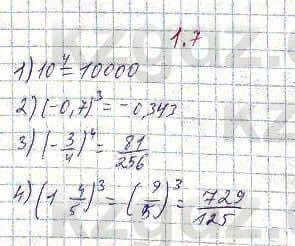 1.7
1) 10⁴ = 10000
2) (-0,7)³ = -0,343
3) (-3/4)⁴ = 81/256
4) (1 4/5)³ = (9/5)³ = 729/125